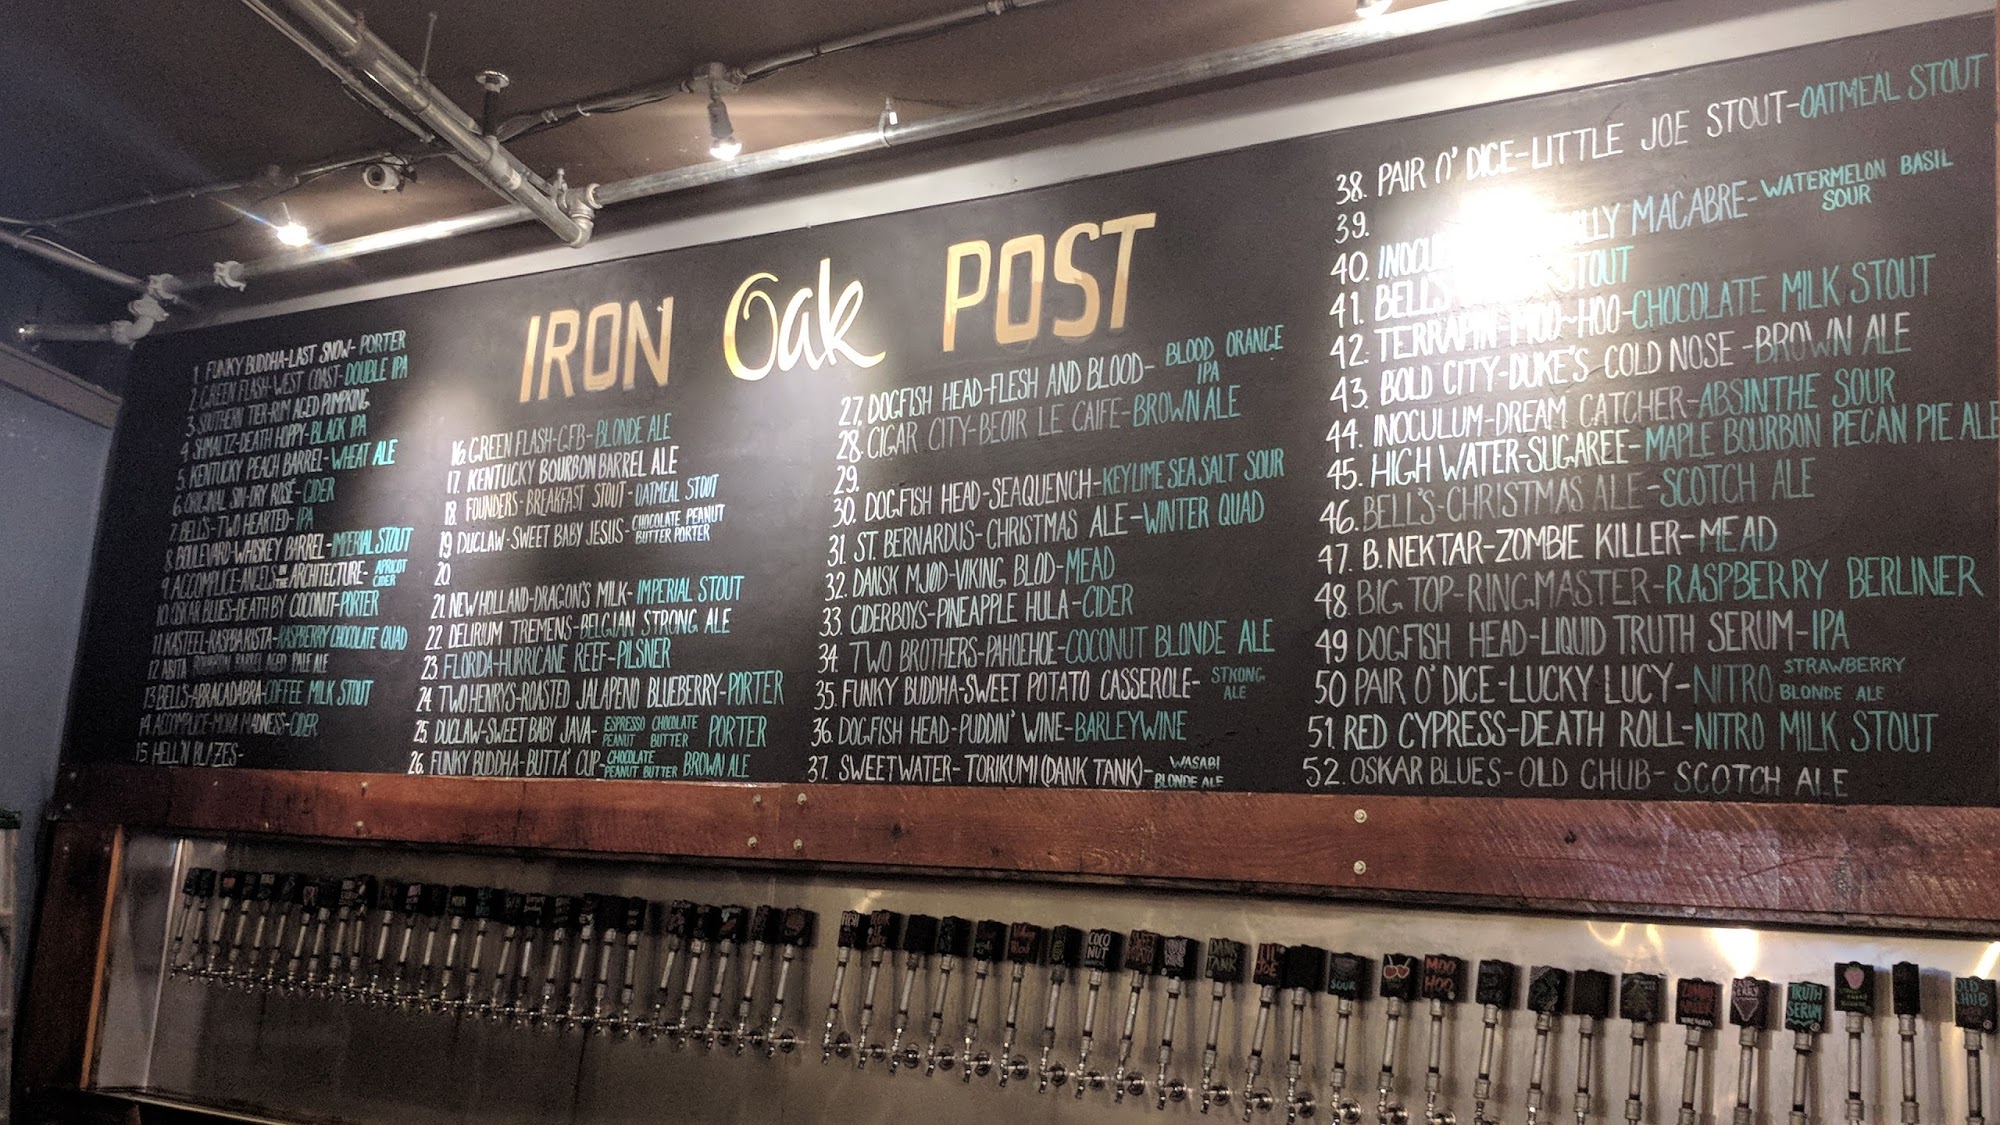 IRON Oak POST
1. FUNKY BUDDHA-LAST SNOW-PORTER
2. GREEN FLASH-WEST COAST-DOUBLE IPA
3. SOUTHERN TIER-RUM AGED PUMPKING
4. SHMALTZ-DEATH HOPPY-BLACK IPA
5. KENTUCKY PEACH BARREL-WHEAT ALE
6. ORIGINAL SIN-DRY ROSÉ-CIDER
7. BELLS-TWO HEARTED-IPA
8. BOULEVARD-WHISKEY BARREL-IMPERIAL STOUT
9. ACCOMPLICE-ANGELS IN THE ARCHITECTURE-APRICOT CIDER
10. OSKAR BLUES-DEATH BY COCONUT-PORTER
11. KASTEEL-RASPBARISTA-RASPBERRY CHOCOLATE QUAD
12. ABITA BOURBON BARREL AGED PALE ALE
13. BELLS-ABRACADABRA-COFFEE MILK STOUT
14. ACCOMPLICE-MORA MADNESS-CIDER
15. HELL'N BLAZES-
16. GREEN FLASH-GFB-BLONDE ALE
17. KENTUCKY BOURBON BARREL ALE
18. FOUNDERS-BREAKFAST STOUT-OATMEAL STOUT
19. DUCLAW-SWEET BABY JESUS-CHOCOLATE PEANUT BUTTER PORTER
20.
21. NEW HOLLAND-DRAGON'S MILK-IMPERIAL STOUT
22. DELIRIUM TREMENS-BELGIAN STRONG ALE
23. FLORIDA-HURRICANE REEF-PILSNER
24. TWO HENRYS-ROASTED JALAPENO BLUEBERRY-PORTER
25. DUCLAW-SWEET BABY JAVA-ESPRESSO CHOCOLATE PEANUT BUTTER PORTER
26. FUNKY BUDDHA-BUTTA' CUP-CHOCOLATE PEANUT BUTTER BROWN ALE
27. DOGFISH HEAD-FLESH AND BLOOD-BLOOD ORANGE IPA
28. CIGAR CITY-BEOIR LE CAIFE-BROWN ALE
29.
30. DOGFISH HEAD-SEAQUENCH-KEYLIME SEA SALT SOUR
31. ST. BERNARDUS-CHRISTMAS ALE-WINTER QUAD
32. DANSK MJØD-VIKING BLOD-MEAD
33. CIDERBOYS-PINEAPPLE HULA-CIDER
34. TWO BROTHERS-PAHOEHOE-COCONUT BLONDE ALE
35. FUNKY BUDDHA-SWEET POTATO CASSEROLE-STRONG ALE
36. DOGFISH HEAD-PUDDIN' WINE-BARLEYWINE
37. SWEETWATER-TORIKUMI (DANK TANK)-WASABI BLONDE ALE
38. PAIR O' DICE-LITTLE JOE STOUT-OATMEAL STOUT
39.
40. MACABRE-WATERMELON BASIL SOUR
41. BELL'S STOUT
42. TERRAPIN-MOO-HOO-CHOCOLATE MILK STOUT
43. BOLD CITY-DUKE'S COLD NOSE-BROWN ALE
44. INOCULUM-DREAM CATCHER-ABSINTHE SOUR
45. HIGH WATER-SUGAREE-MAPLE BOURBON PECAN PIE ALE
46. BELL'S-CHRISTMAS ALE-SCOTCH ALE
47. B. NEKTAR-ZOMBIE KILLER-MEAD
48. BIG TOP-RINGMASTER-RASPBERRY BERLINER
49. DOGFISH HEAD-LIQUID TRUTH SERUM-IPA
50. PAIR O' DICE-LUCKY LUCY-NITRO STRAWBERRY BLONDE ALE
51. RED CYPRESS-DEATH ROLL-NITRO MILK STOUT
52. OSKAR BLUES-OLD CHUB-SCOTCH ALE
COCONUT
DANK TANK
LIL JOE
SOUR
MOO HOO
TRUTH SERUM
OLD CHUB